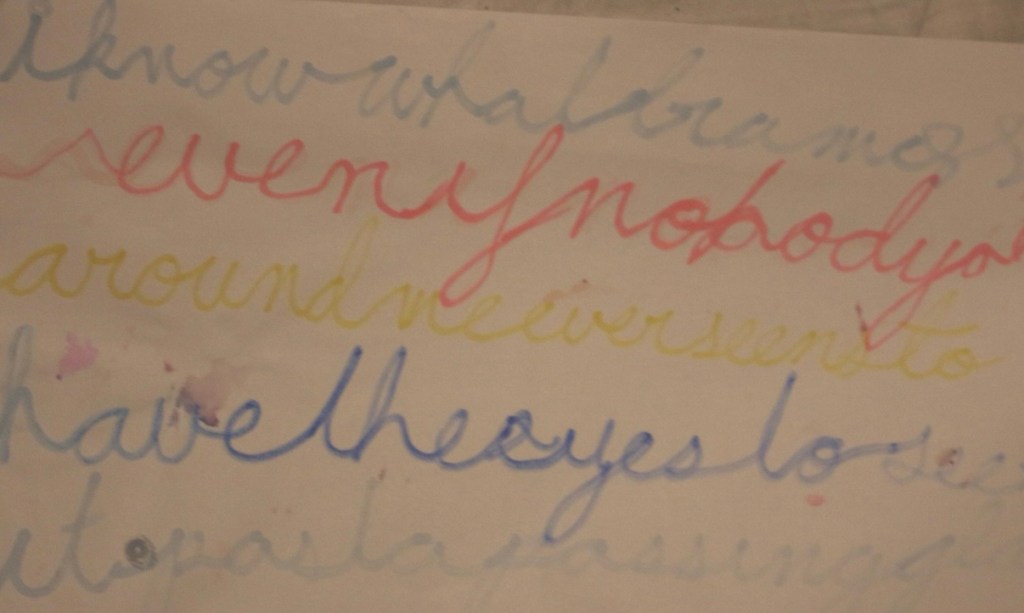 i know what i am
even if nobody
around me ever seems to
have the eyes to see
it past a passing